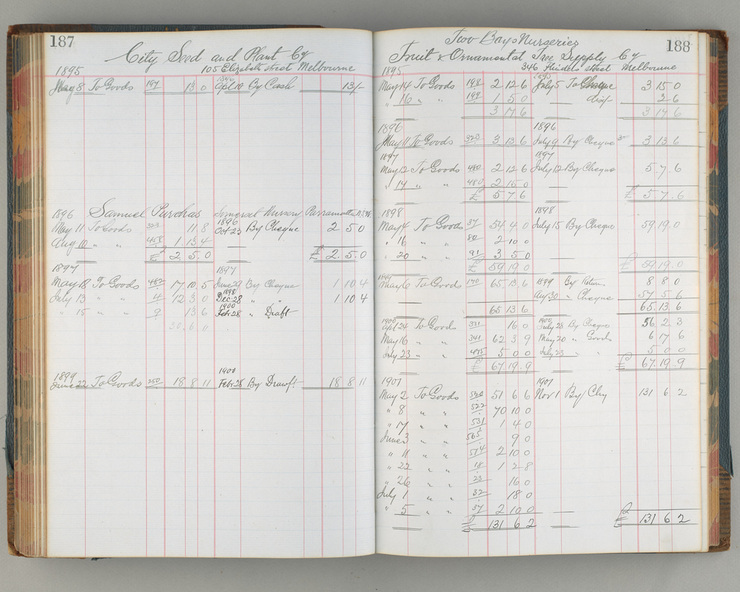 187
City Seed and Plant Co
1895 105 Elizabeth Street Melbourne
May 8 To Goods 13 0 Oct 10 By Cash 13/-
1896 Samuel Purchas Somerset Nursery Parramatta
1896
May 11 To Goods 11 8 Oct 29 By Cheque 2 5 0
Aug 10 " " 1 13 4
£ 2 5 0 £ 2 5 0
1897 1897
May 18 To Goods 17 10 5 June 29 By Cheque 1 10 4
1898
July 13 " " 12 3 0 Dec 28 " " 1 10 4
1900
" 15 " " 9 13 6 Feb 28 " Draft
1899 1900
June 22 To Goods 18 8 11 Feb 28 By Drawft 18 8 11
188
Two Bays Nurseries
Fruit & Ornamental Tree Supply Co
1895 346 Flinders Street Melbourne
May 14 To Goods 198 2 12 6 July 5 To Cheque 3 15 0
" 16 " " 199 1 5 0 2 6
3 17 6 3 17 6
1896 1896
May 11 To Goods 3 13 6 July 9 By Cheque 3 13 6
1897 1897
May 12 To Goods 480 2 12 6 July 12 By Cheque 5 7 6
" 14 " " 480 2 15 0
£ 5 7 6 £ 5 7 6
1898 1898
May 4 To Goods 54 4 0 July 15 By Cheque 59 19 0
" 16 " 2 10 0
" 20 " " 91 3 5 0
£ 59 19 0 59 19 0
May 6 To Goods 65 13 6 1899 By Return 8 8 0
Aug 30 " Cheque 57 5 6
65 13 6 65 13 6
1900 1900
Apl 24 To Good 16 0 July 28 By Cheque 56 2 3
May 16 " " 62 3 9 May 20 " Goods 6 17 6
July 23 " " 5 0 0 July 23 " " 5 0 0
£ 67 19 9 £ 67 19 9
1901 1901
May 2 To Goods 520 51 6 6 Nov 1 By Chq 131 6 2
" 8 " " 522 70 10 0
" 17 " " 531 1 4 0
June 3 " " 565 9 0
" 11 " " 574 2 10 0
" 22 " " 18 1 2 8
" 26 " " 22 16 0
July 1 " " 32 18 0
" 5 " " 57 2 10 0
£ 131 6 2 £ 131 6 2